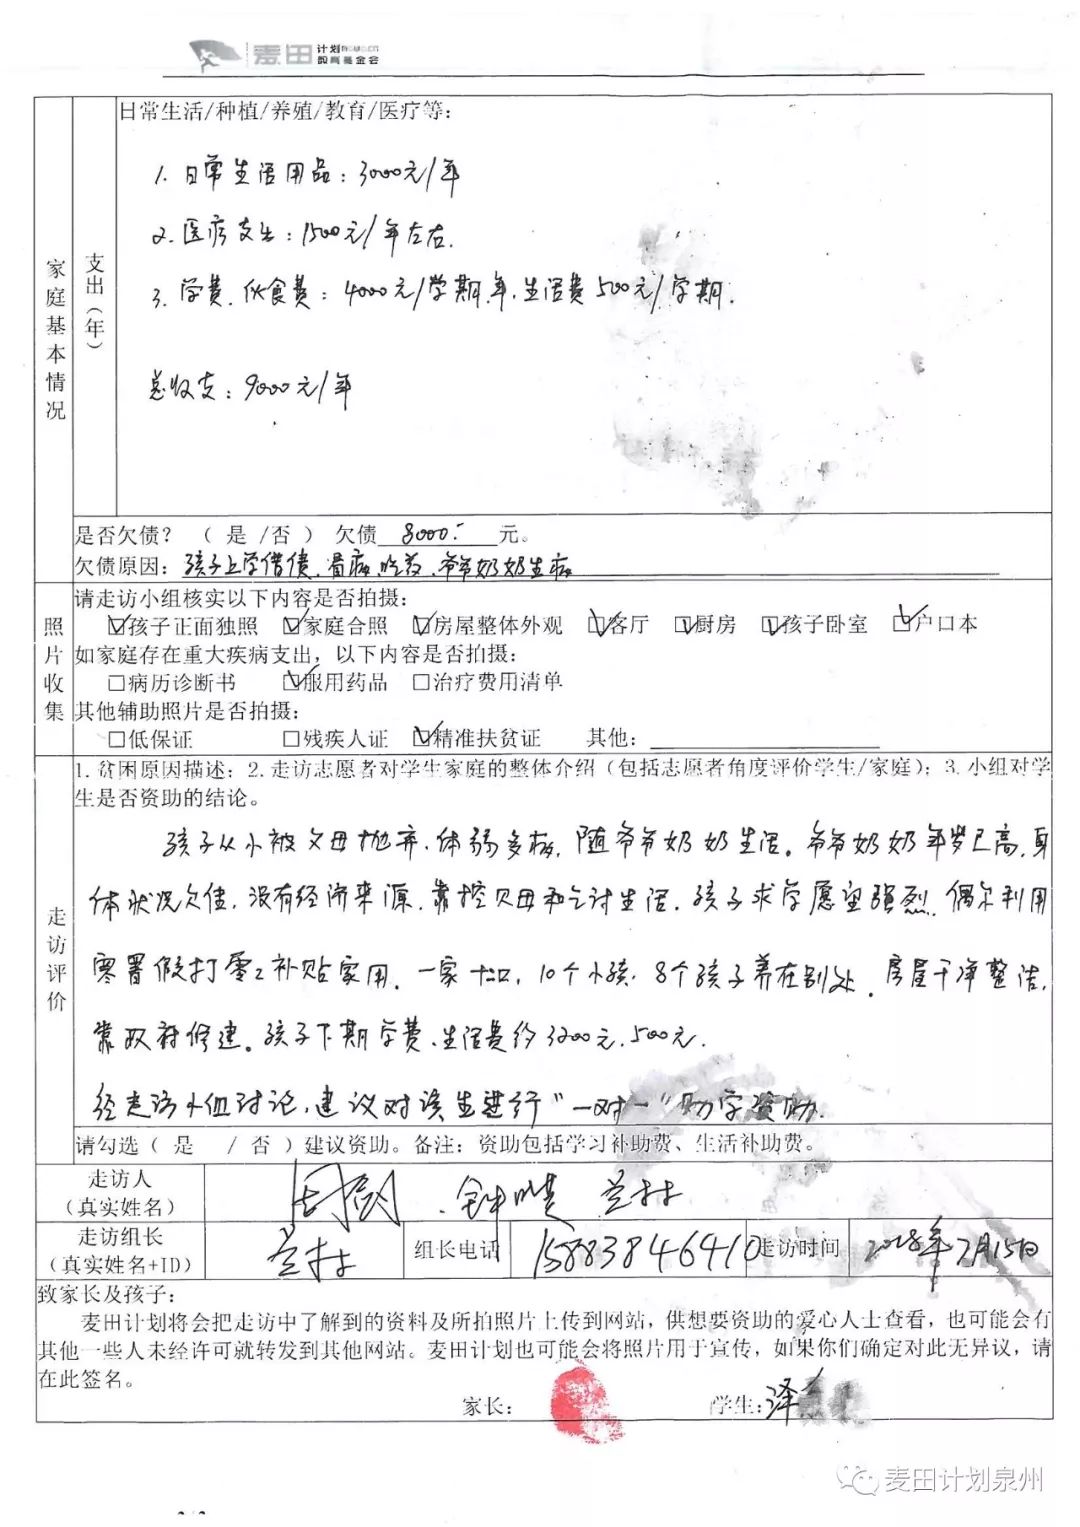 麦田计划
教育基金会
日常生活/种植/养殖/教育/医疗等：
1. 日常生活用品：3000元/年
2. 医疗支出：1500元/年左右.
家庭基本情况
支出（年）
3. 学费、伙食费：4000元/学期.年.生活费500元/学期.
总收支：9000元/年
是否欠债？（ 是 /否 ）欠债 8000.- 元。
欠债原因：孩子上学借债、看病、吃药、爷爷奶奶生病
照片收集
请走访小组核实以下内容是否拍摄：
☑孩子正面独照 ☑家庭合照 ☑房屋整体外观 ☑客厅 ☑厨房 ☑孩子卧室 ☑户口本
如家庭存在重大疾病支出，以下内容是否拍摄：
□病历诊断书 ☑服用药品 □治疗费用清单
其他辅助照片是否拍摄：
□低保证 □残疾人证 ☑精准扶贫证 其他：
走访评价
1.贫困原因描述；2.走访志愿者对学生家庭的整体介绍（包括志愿者角度评价学生/家庭）；3.小组对学
生是否资助的结论。
孩子从小被父母抛弃、体弱多病，随爷爷奶奶生活。爷爷奶奶年岁已高，身
体状况欠佳，没有经济来源，靠挖贝母和乞讨生活。孩子求学愿望强烈，偶尔利用
寒署假打零工补贴家用。一家十口，10个小孩，8个孩子养在别处。房屋干净整洁，
靠政府修建。孩子下期学费、生活费约3200元、500元.
经走访小组讨论，建议对该生进行“一对一”助学资助.
请勾选（ 是 / 否 ）建议资助。备注：资助包括学习补助费、生活补助费。
走访人
（真实姓名）
走访组长
（真实姓名+ID）
组长电话 15883846410 走访时间 2018年7月15日
致家长及孩子：
麦田计划将会把走访中了解到的资料及所拍照片上传到网站，供想要资助的爱心人士查看，也可能会有
其他一些人未经许可就转发到其他网站。麦田计划也可能会将照片用于宣传，如果你们确定对此无异议，请
在此签名。
家长： 学生：泽
麦田计划泉州